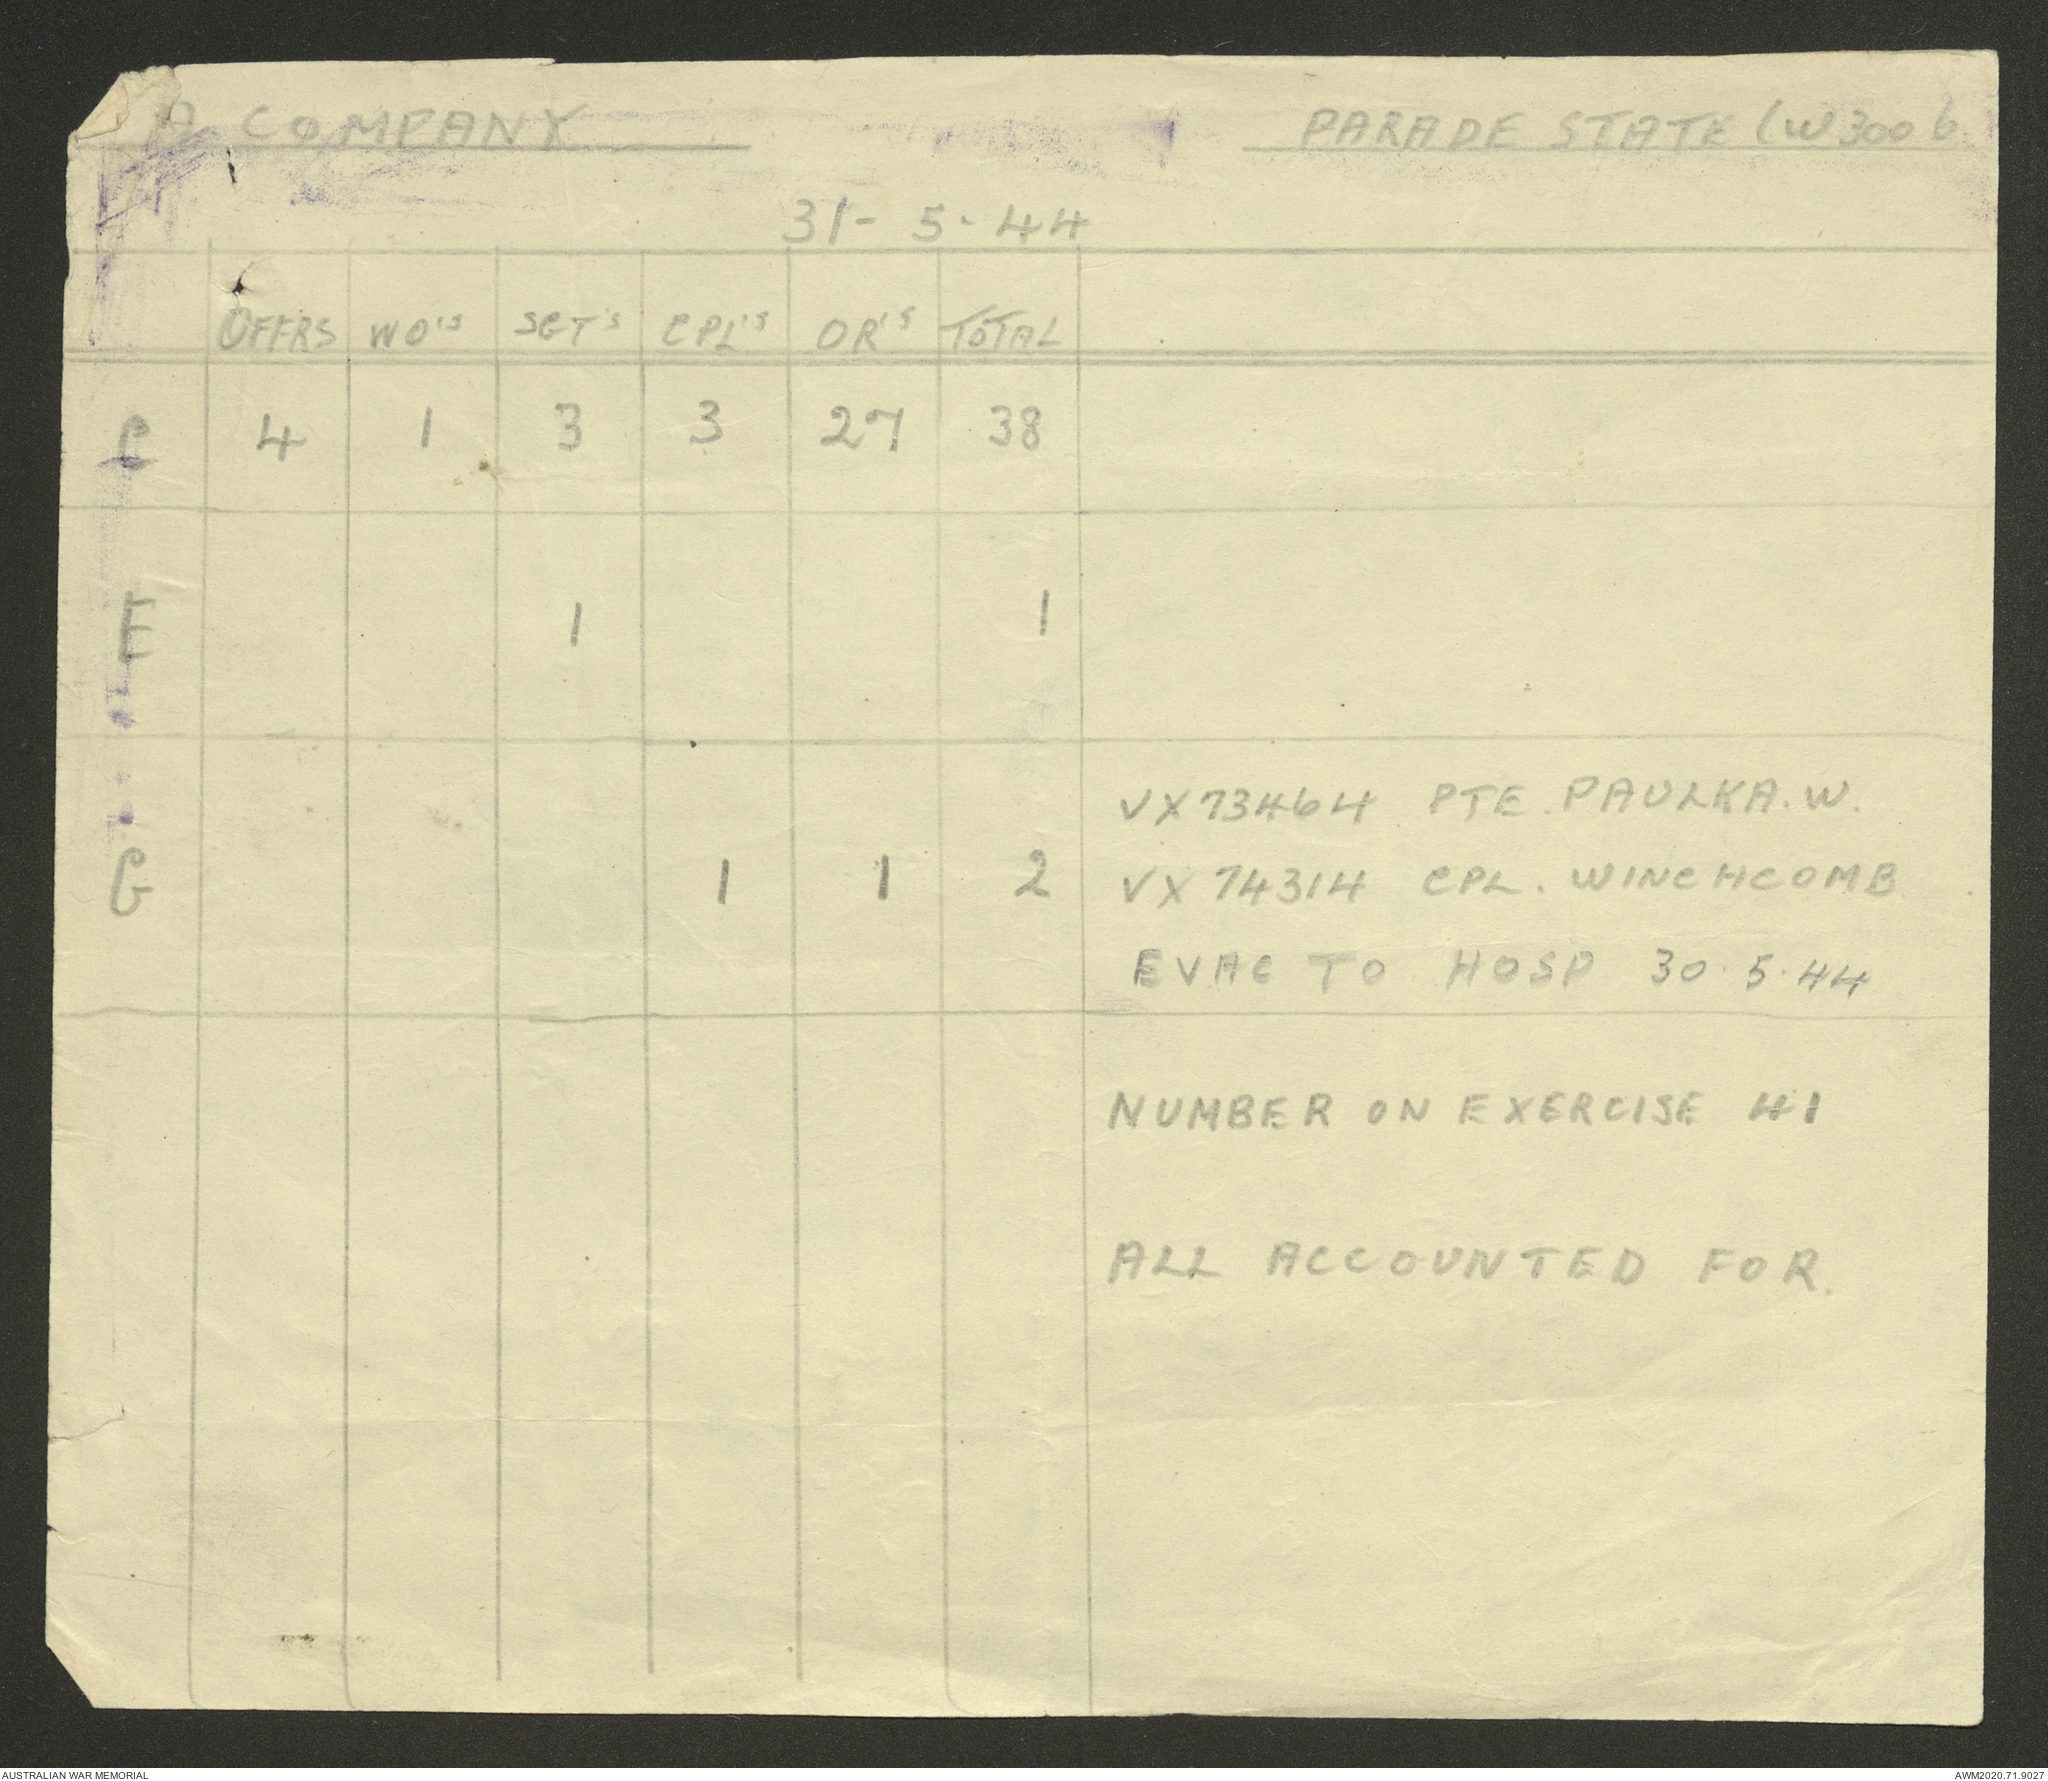 A COMPANY PARADE STATE (W3006
31-5-44
OFFRS WO'S SGT'S CPL'S OR'S TOTAL
C 4 1 3 3 27 38
E 1 1
G 1 1 2
VX73464 PTE. PAULKA. W.
VX74314 CPL. WINCHCOMB
EVAC TO HOSP 30.5.44
NUMBER ON EXERCISE 41
ALL ACCOUNTED FOR.
AUSTRALIAN WAR MEMORIAL AWM2020.71.9027